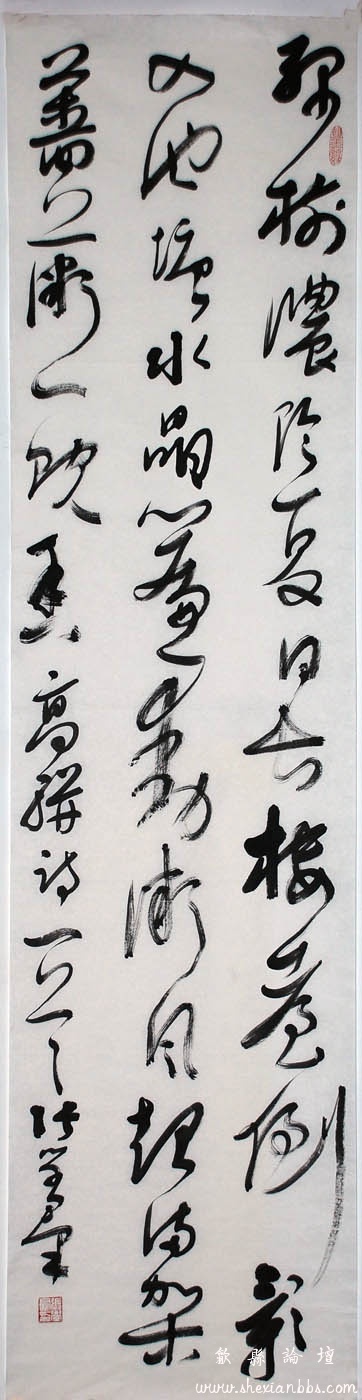 綠樹濃陰夏日長樓臺倒影
入池塘水晶簾動微風起滿架
薔薇一院香 高駢詩一首
歙縣論壇
www.shexianbbs.com